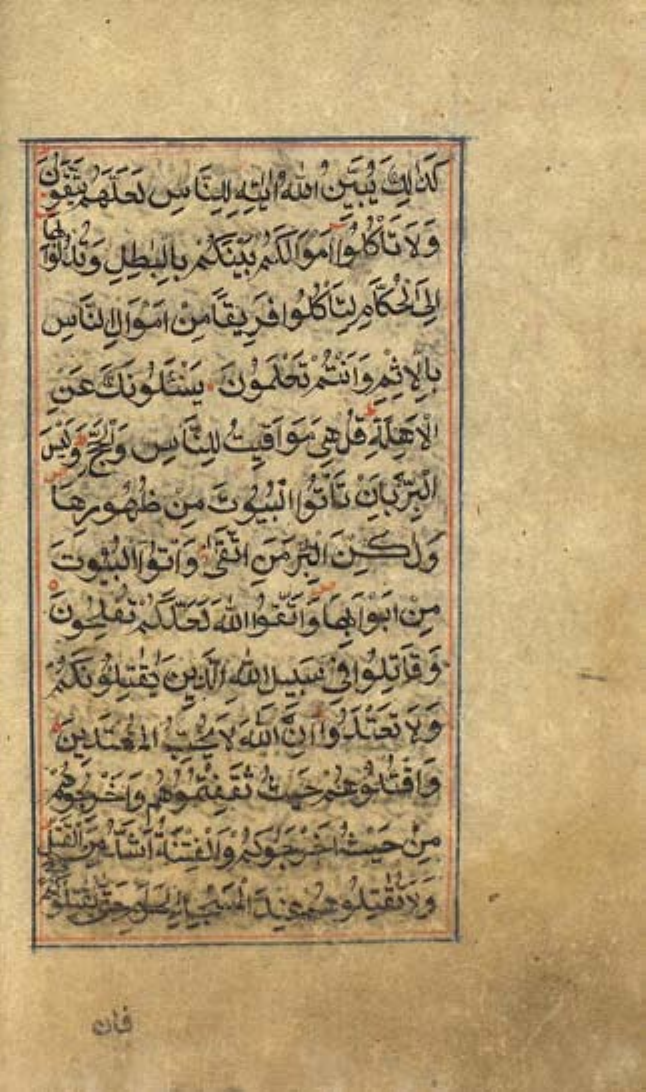 كَذَٰلِكَ يُبَيِّنُ اللّٰهُ اٰيٰتِهٖ لِلنَّاسِ لَعَلَّهُمْ يَتَّقُونَ
وَلَا تَأْكُلُوٓا اَمْوَالَكُمْ بَيْنَكُمْ بِالْبٰطِلِ وَتُدْلُوا بِهَا
اِلَى الْحُكَّامِ لِتَأْكُلُوا فَرِيقًا مِنْ اَمْوَالِ النَّاسِ
بِالْاِثْمِ وَاَنْتُمْ تَعْلَمُونَ يَسْـَٔلُونَكَ عَنِ
الْاَهِلَّةِ قُلْ هِيَ مَوَاقِيتُ لِلنَّاسِ وَالْحَجِّ وَلَيْسَ
الْبِرُّ بِاَنْ تَأْتُوا الْبُيُوتَ مِنْ ظُهُورِهَا
وَلٰكِنَّ الْبِرَّ مَنِ اتَّقٰى وَأْتُوا الْبُيُوتَ
مِنْ اَبْوَابِهَا وَاتَّقُوا اللّٰهَ لَعَلَّكُمْ تُفْلِحُونَ
وَقَاتِلُوا فِي سَبِيلِ اللّٰهِ الَّذِينَ يُقٰتِلُونَكُمْ
وَلَا تَعْتَدُوا اِنَّ اللّٰهَ لَا يُحِبُّ الْمُعْتَدِينَ
وَاقْتُلُوهُمْ حَيْثُ ثَقِفْتُمُوهُمْ وَاَخْرِجُوهُمْ
مِنْ حَيْثُ اَخْرَجُوكُمْ وَالْفِتْنَةُ اَشَدُّ مِنَ الْقَتْلِ
وَلَا تُقٰتِلُوهُمْ عِنْدَ الْمَسْجِدِ الْحَرَامِ حَتّٰى يُقٰتِلُوكُمْ
فان